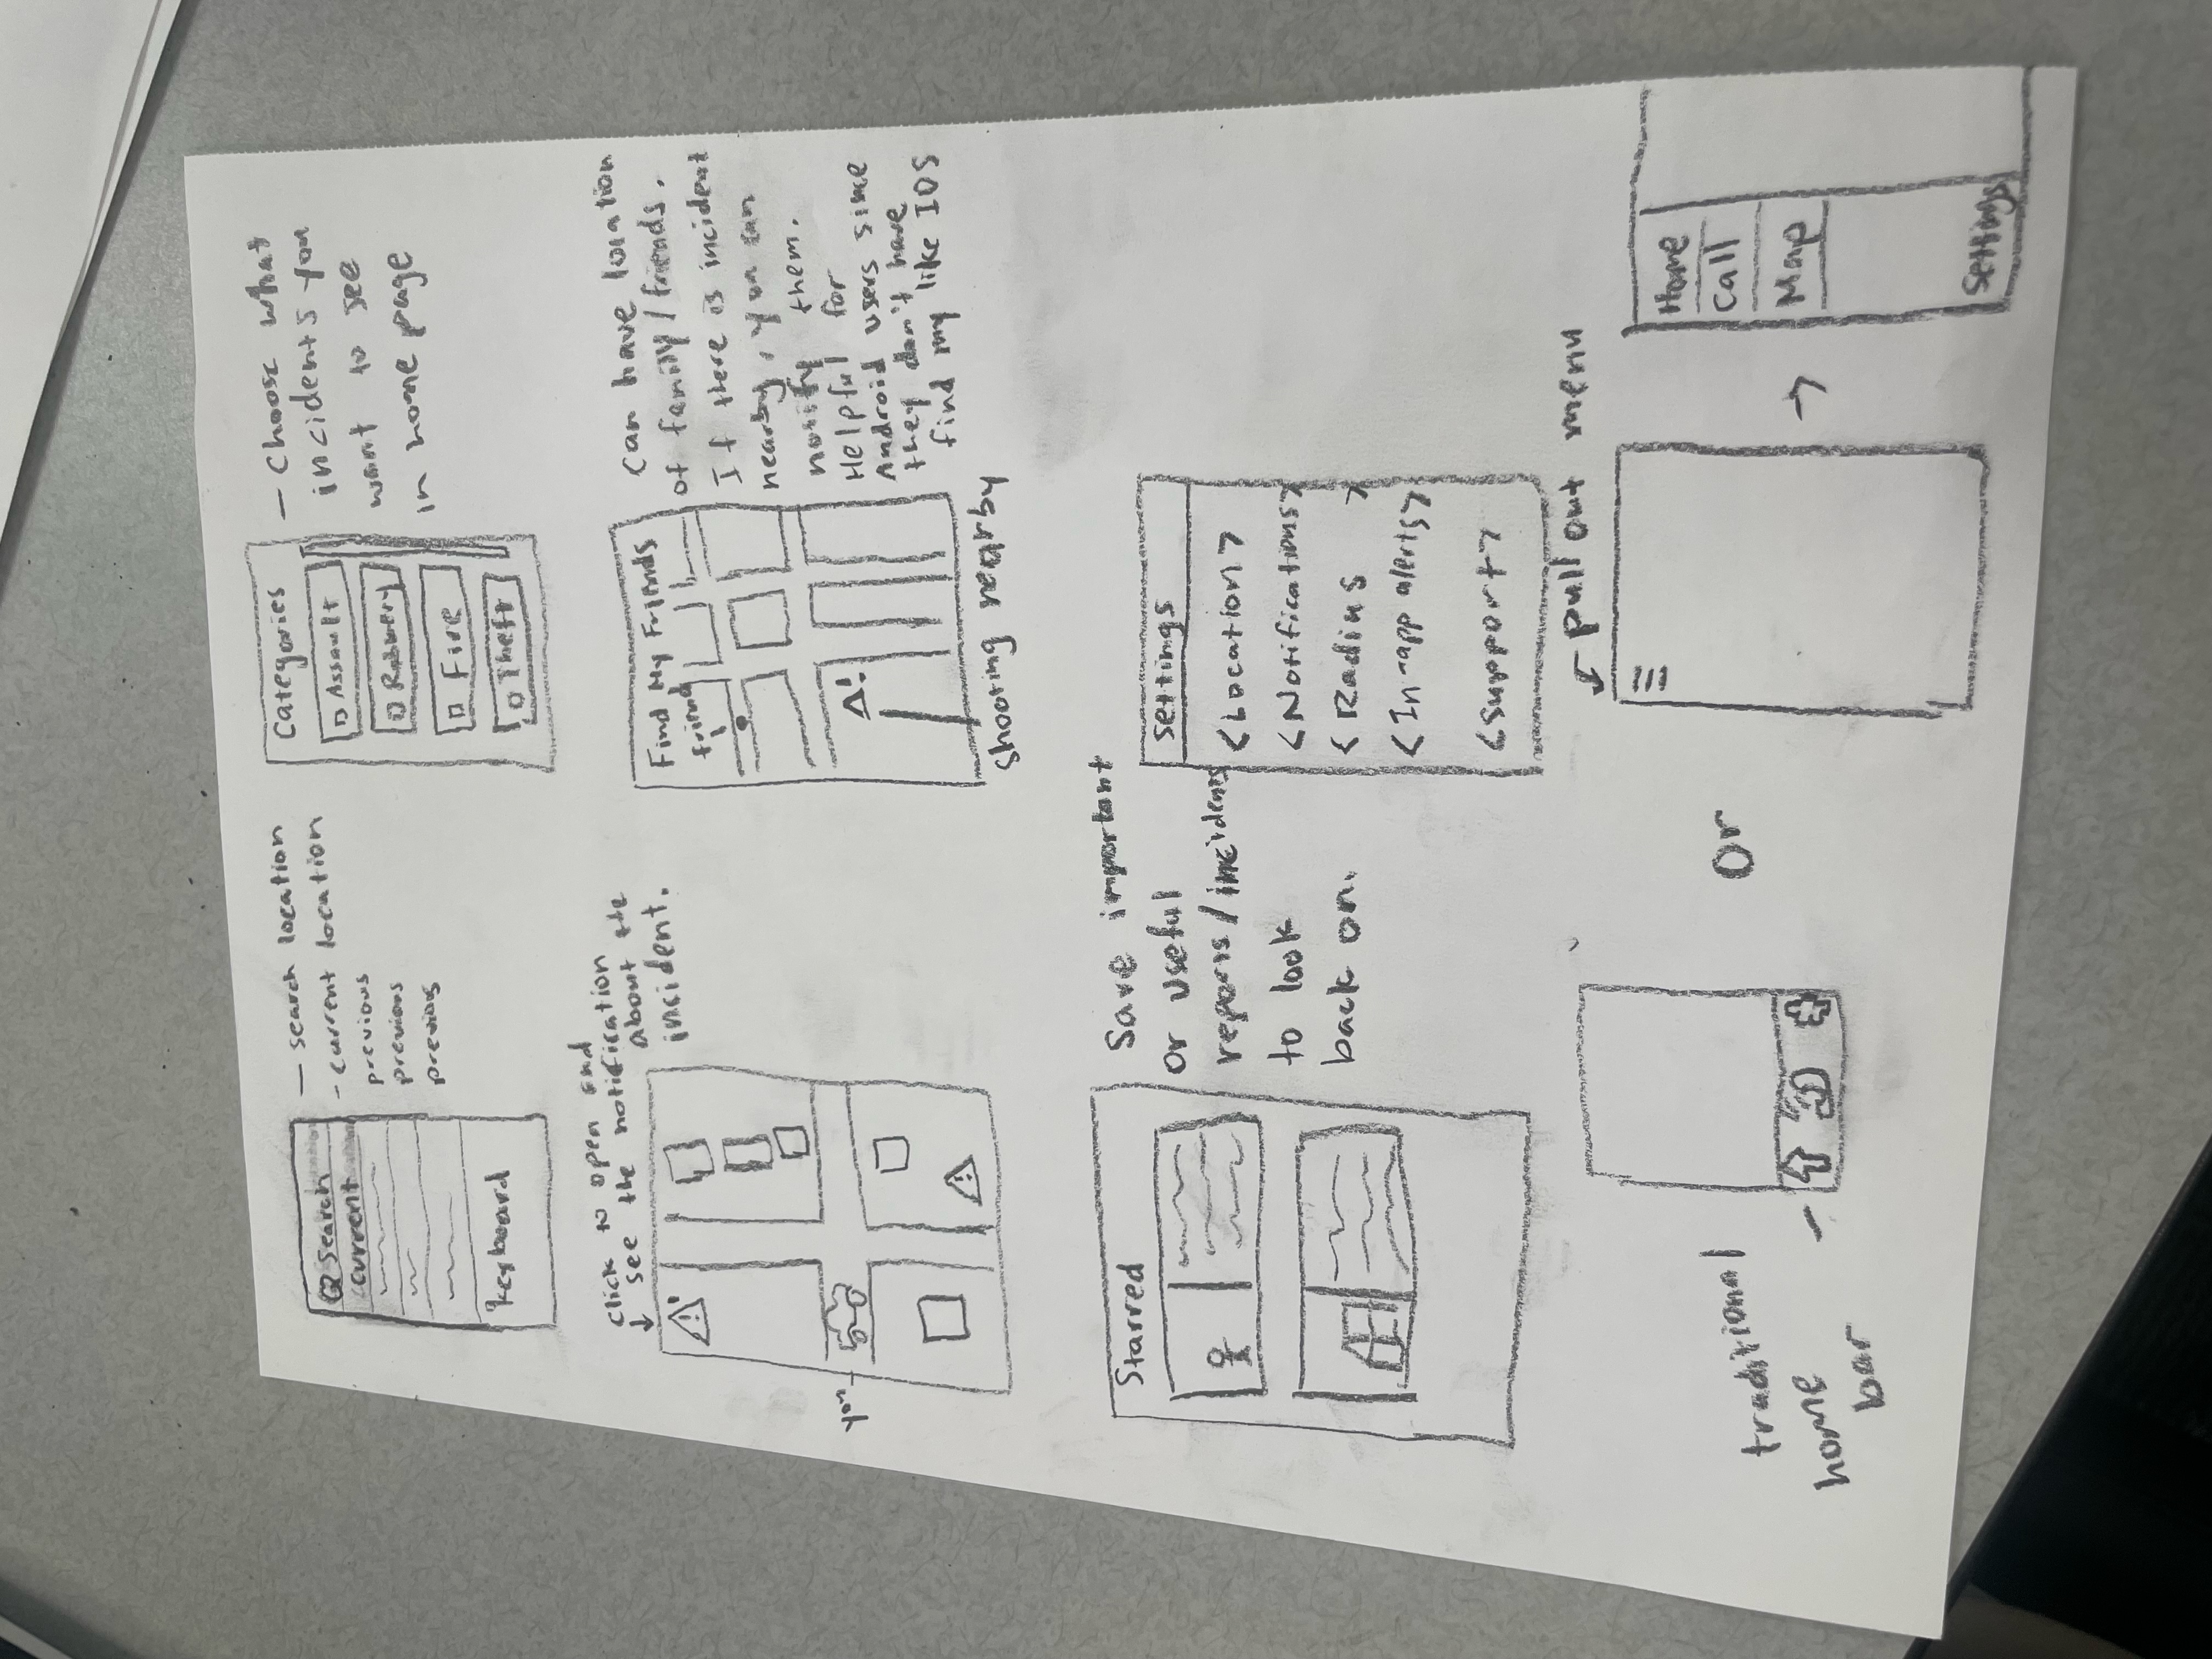 Search
current
keyboard
— search location
- current location
previous
previous
previous
Categories
Assault
Robbery
Fire
Theft
— Choose what
incidents you
want to see
in home page
click to open and
see the notification
about the
incident.
you
Find My Friends
friend
!
shooting nearby
Can have location
of family/friends.
If there is incident
nearby, you can
notify them.
Helpful for
Android users since
they don't have
find my like IOS
Starred
Save important
or useful
reports/incidents
to look
back on.
Settings
<Location>
<Notifications>
< Radius >
<In-app alerts>
<Support>
traditional
home
bar
or
pull out menu
Home
Call
Map
Settings